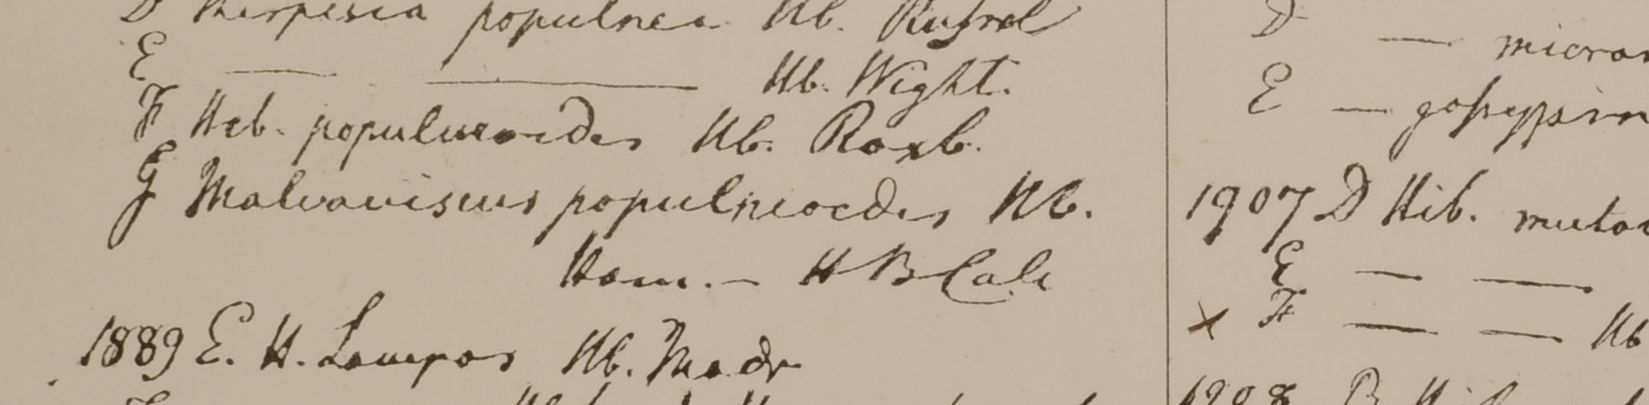 D Therpesia populnea Hb. Rusrol
E — — Hb. Wight.
F Hib. populneoides Hb. Roxb.
G Malvaviscus populneoides Hb.
Ham. — H B Calc
1889 E. H. Lampas Hb. Madr
D — micran
E — gossypin
1907 D Hib. mutab
E — —
x F — — Hb
1908 B Hib